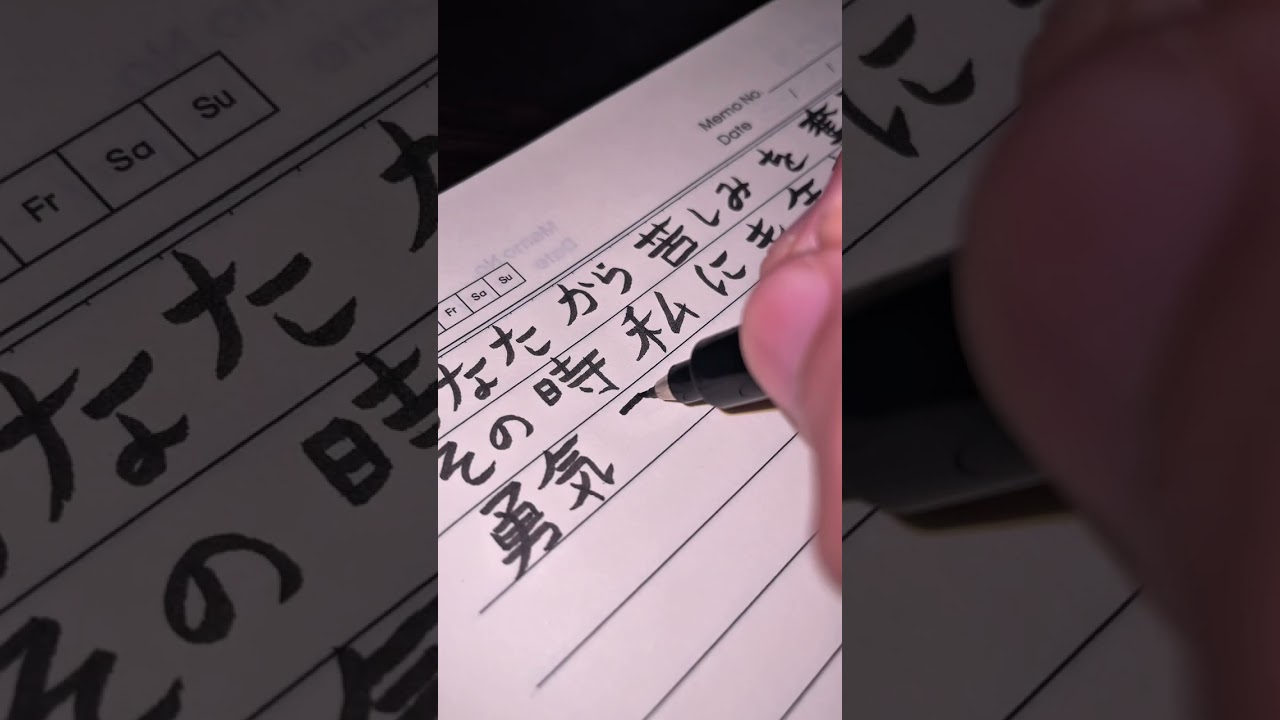 Memo No.
Date
Fr Sa Su
なたから苦しみを奪
その時私にも
勇気